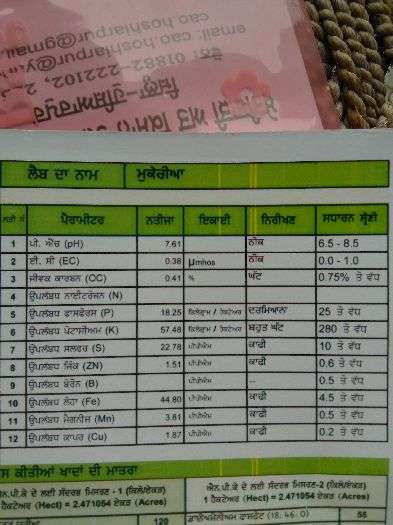 email: cao.hoshiarpur@gmail
cao.hoshiarpur@y
ਫੋਨ: 01882-222102,
ਜ਼ਿਲ੍ਹਾ-ਹੁਸ਼ਿਆਰਪੁਰ
ਲੈਬ ਦਾ ਨਾਮ ਮੁਕੇਰੀਆ
ਲੜੀ ਨੰ ਪੈਰਾਮੀਟਰ ਨਤੀਜਾ ਇਕਾਈ ਨਿਰੀਖਣ ਸਧਾਰਨ ਸ਼੍ਰੇਣੀ
1 ਪੀ. ਐੱਚ (pH) 7.61 ਠੀਕ 6.5 - 8.5
2 ਈ. ਸੀ (EC) 0.38 µmhos ਠੀਕ 0.0 - 1.0
3 ਜੀਵਕ ਕਾਰਬਨ (OC) 0.41 % ਘੱਟ 0.75% ਤੋਂ ਵੱਧ
4 ਉਪਲੱਬਧ ਨਾਈਟਰੋਜਨ (N)
5 ਉਪਲੱਬਧ ਫਾਸਫੋਰਸ (P) 18.25 ਕਿਲੋਗ੍ਰਾਮ / ਹੈਕਟੇਅਰ ਦਰਮਿਆਨਾ 25 ਤੋਂ ਵੱਧ
6 ਉਪਲੱਬਧ ਪੋਟਾਸ਼ੀਅਮ (K) 57.48 ਕਿਲੋਗ੍ਰਾਮ / ਹੈਕਟੇਅਰ ਬਹੁਤ ਘੱਟ 280 ਤੋਂ ਵੱਧ
7 ਉਪਲੱਬਧ ਸਲਫਰ (S) 22.78 ਪੀਪੀਐਮ ਕਾਫੀ 10 ਤੋਂ ਵੱਧ
8 ਉਪਲੱਬਧ ਜਿੰਕ (ZN) 1.51 ਪੀਪੀਐਮ ਕਾਫੀ 0.6 ਤੋਂ ਵੱਧ
9 ਉਪਲੱਬਧ ਬੋਰੋਨ (B) ਪੀਪੀਐਮ -- 0.5 ਤੋਂ ਵੱਧ
10 ਉਪਲੱਬਧ ਲੋਹਾ (Fe) 44.80 ਪੀਪੀਐਮ ਕਾਫੀ 4.5 ਤੋਂ ਵੱਧ
11 ਉਪਲੱਬਧ ਮੈਗਨੀਜ਼ (Mn) 3.61 ਪੀਪੀਐਮ ਕਾਫੀ 0.5 ਤੋਂ ਵੱਧ
12 ਉਪਲੱਬਧ ਕਾਪਰ (Cu) 1.87 ਪੀਪੀਐਮ ਕਾਫੀ 0.2 ਤੋਂ ਵੱਧ
ਸ ਕੀਤੀਆਂ ਖਾਦਾਂ ਦੀ ਮਾਤਰਾ
ਐਨ.ਪੀ.ਕੇ ਦੇ ਲਈ ਸੰਦਰਭ ਮਿਸ਼ਰਣ - 1 (ਕਿਲੋ/ਏਕੜ) ਐਨ.ਪੀ.ਕੇ ਦੇ ਲਈ ਸੰਦਰਭ ਮਿਸ਼ਰਣ-2 (ਕਿਲੋ/ਏਕੜ)
ਹੈਕਟੇਅਰ (Hect) = 2.471054 ਏਕੜ (Acres) 1 ਹੈਕਟੇਅਰ (Hect) = 2.471054 ਏਕੜ (Acres)
120 ਡਾਈਅਮੋਨੀਅਮ ਫਾਸਫੇਟ (18. 46. 0) 55